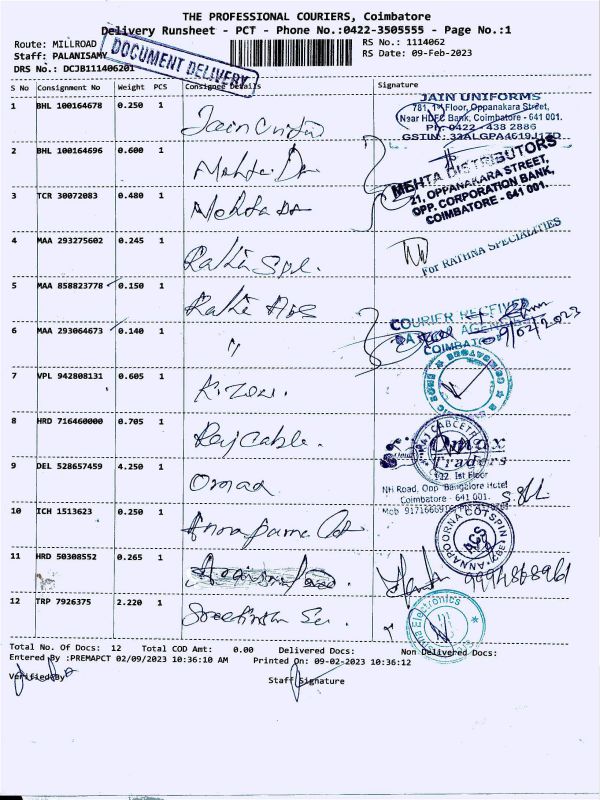 THE PROFESSIONAL COURIERS, Coimbatore
Delivery Runsheet - PCT - Phone No.:0422-3505555 - Page No.:1
Route: MILLROAD
RS No.: 1114062
Staff: PALANISAMY
RS Date: 09-Feb-2023
DRS No.: DCJB111406201
DOCUMENT DELIVERY
S No Consignment No Weight PCS Consignee Details Signature
1 BHL 100164678 0.250 1 Jain Unifo
JAIN UNIFORMS
781, 1st Floor, Oppanakara Street,
Near HDFC Bank, Coimbatore - 641 001.
Ph: 0422 - 438 2886
GSTIN: 33ALGPA4619J1ZD
2 BHL 100164696 0.600 1 Mehta Dr
MEHTA DISTRIBUTORS
21, OPPANAKARA STREET,
OPP. CORPORATION BANK,
COIMBATORE - 641 001.
3 TCR 30072083 0.480 1 Mehta Dr
4 MAA 293275602 0.245 1 Spl.
For RATHNA SPECIALITIES
5 MAA 858823778 0.150 1
COURIER RECEIVED
AGEN
COIMBATO
9/02/2023
6 MAA 293064673 0.140 1 "
7 VPL 942808131 0.605 1
COIMBATORE
8 HRD 716460000 0.705 1 Raj Cable.
9 DEL 528657459 4.250 1 Omax
Omax
Traders
1st Floor
NH Road, Opp Bangalore Hotel
Coimbatore - 641 001.
10 ICH 1513623 0.250 1
ANNAPOORNA COTSPIN
ACS
11 HRD 50308552 0.265 1
9994868961
12 TRP 7926375 2.220 1
Electronics
Total No. Of Docs: 12 Total COD Amt: 0.00 Delivered Docs: Non Delivered Docs:
Entered By :PREMAPCT 02/09/2023 10:36:10 AM Printed On: 09-02-2023 10:36:12
Verified By
Staff Signature